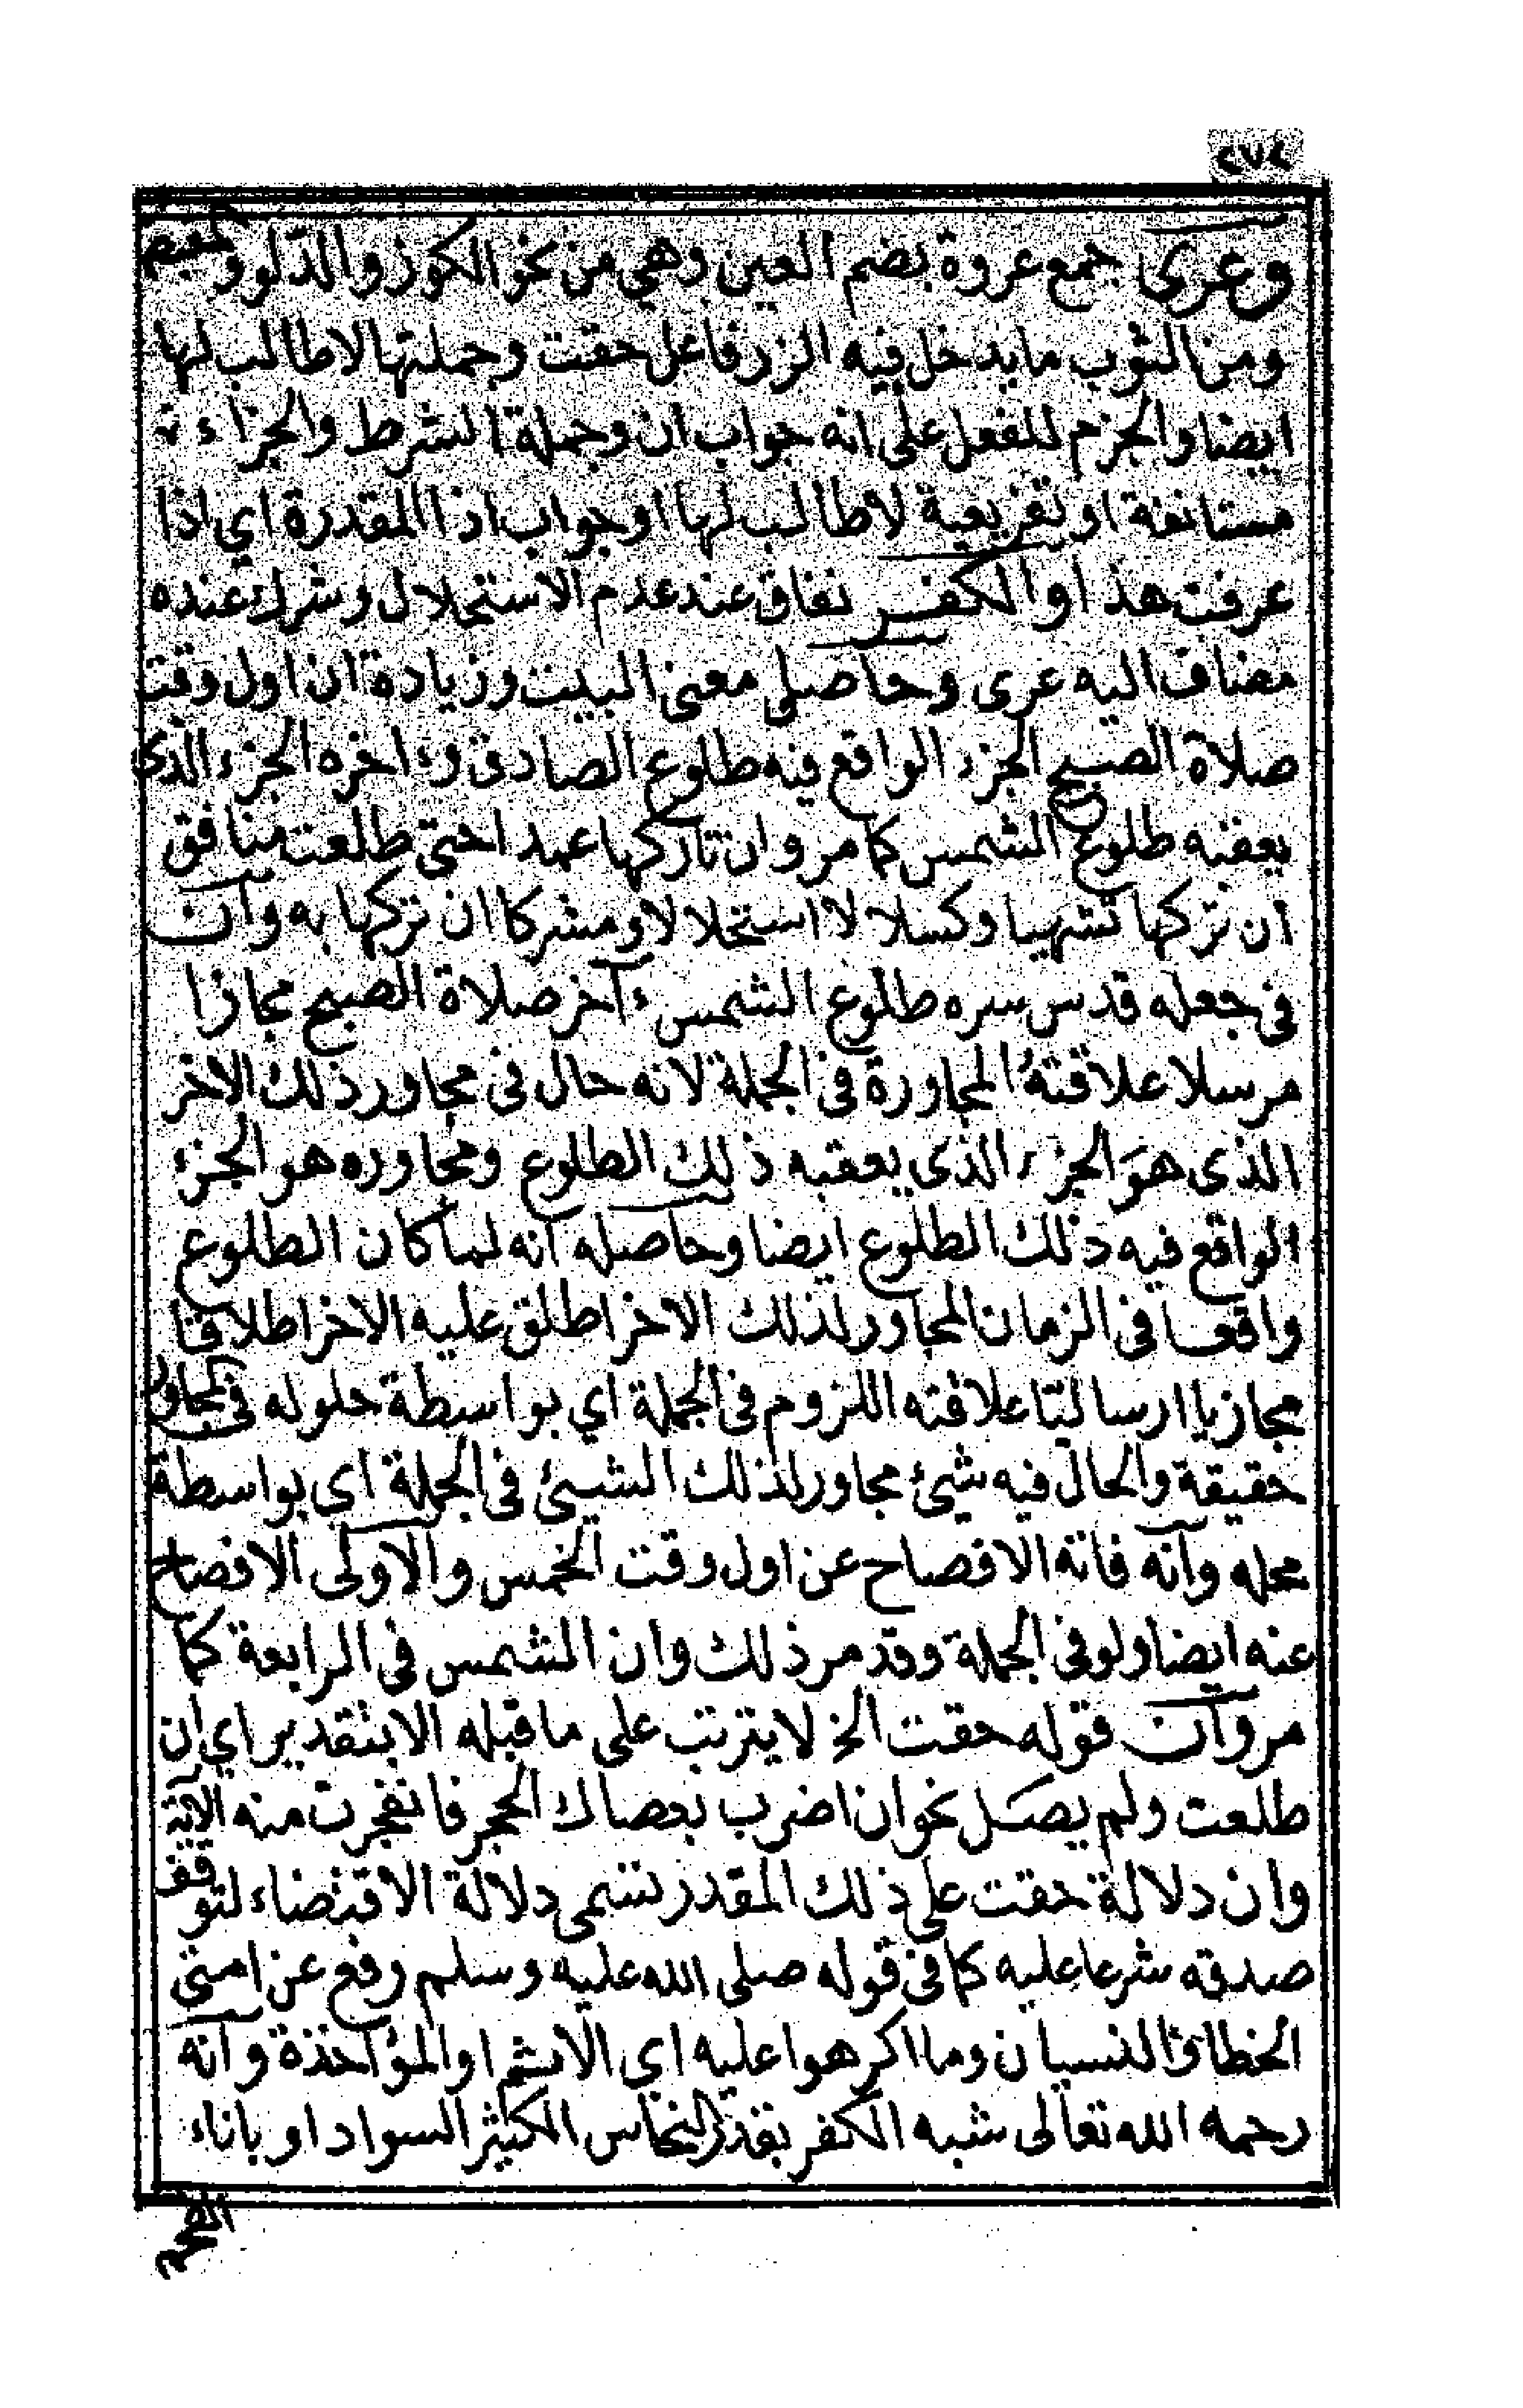 ٢٧٢
وعرى جمع عروة بضم العين وهي من نحو الكوز والدلو المقبض
ومن الثوب ما يدخل فيه الزر فاعل حقت وجملتها لا طالب لها
ايضا والجزم للفعل على انه جواب ان وجملة الشرط والجزاء
مستانفة او تفريعية لا طالب لها او جواب اذا المقدرة اي اذا
عرفت هذا والكفر نفاق عند عدم الاستحلال وشرك عنده
مضاف اليه عرى وحاصل معنى البيت وزيادة ان اول وقت
صلاة الصبح الجزء الواقع فيه طلوع الصادق وءاخره الجزء الذى
يعقبه طلوع الشمس كما مر وان تاركها عمدا حتى طلعت منافق
ان تركها تشهيا وكسلا لا استحلالا ومشركا ان تركها به وان
فى جعله قدس سره طلوع الشمس ءآخر صلاة الصبح مجازا
مرسلا علاقته المجاورة فى الجملة لانه حال فى مجاور ذلك الاخر
الذى هو الجزء الذى يعقبه ذلك الطلوع ومجاوره هو الجزء
الواقع فيه ذلك الطلوع ايضا وحاصله انه لما كان الطلوع
واقعا فى الزمان المجاور لذلك الاخر اطلق عليه الاخر اطلاقا
مجازيا ارساليا علاقته اللزوم فى الجملة اي بواسطة حلوله فى المجاور
حقيقة والحال فيه شئ مجاور لذلك الشيئ فى الجملة اى بواسطة
محله وانه فاته الافصاح عن اول وقت الخمس والاولى الافصاح
عنه ايضا ولو فى الجملة وقد مر ذلك وان الشمس فى الرابعة كما
مر وان قوله حقت الخ لا يترتب على ما قبله الا بتقدير اي ان
طلعت ولم يصل نحو ان اضرب بعصاك الحجر فانفجرت منه الآية
وان دلالة حقت على ذلك المقدر تسمى دلالة الاقتضاء لتوقف
صدقه شرعا عليه كما فى قوله صلى الله عليه وسلم رفع عن امتى
الخطا والنسيان وما اكرهوا عليه اي الاثم او المؤاخذة وانه
رحمه الله تعالى شبه الكفر بقدر النحاس الكثير السواد او باناء
الفحم